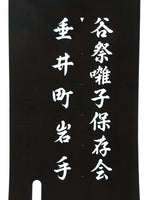 谷祭囃子保存会
垂井町岩手